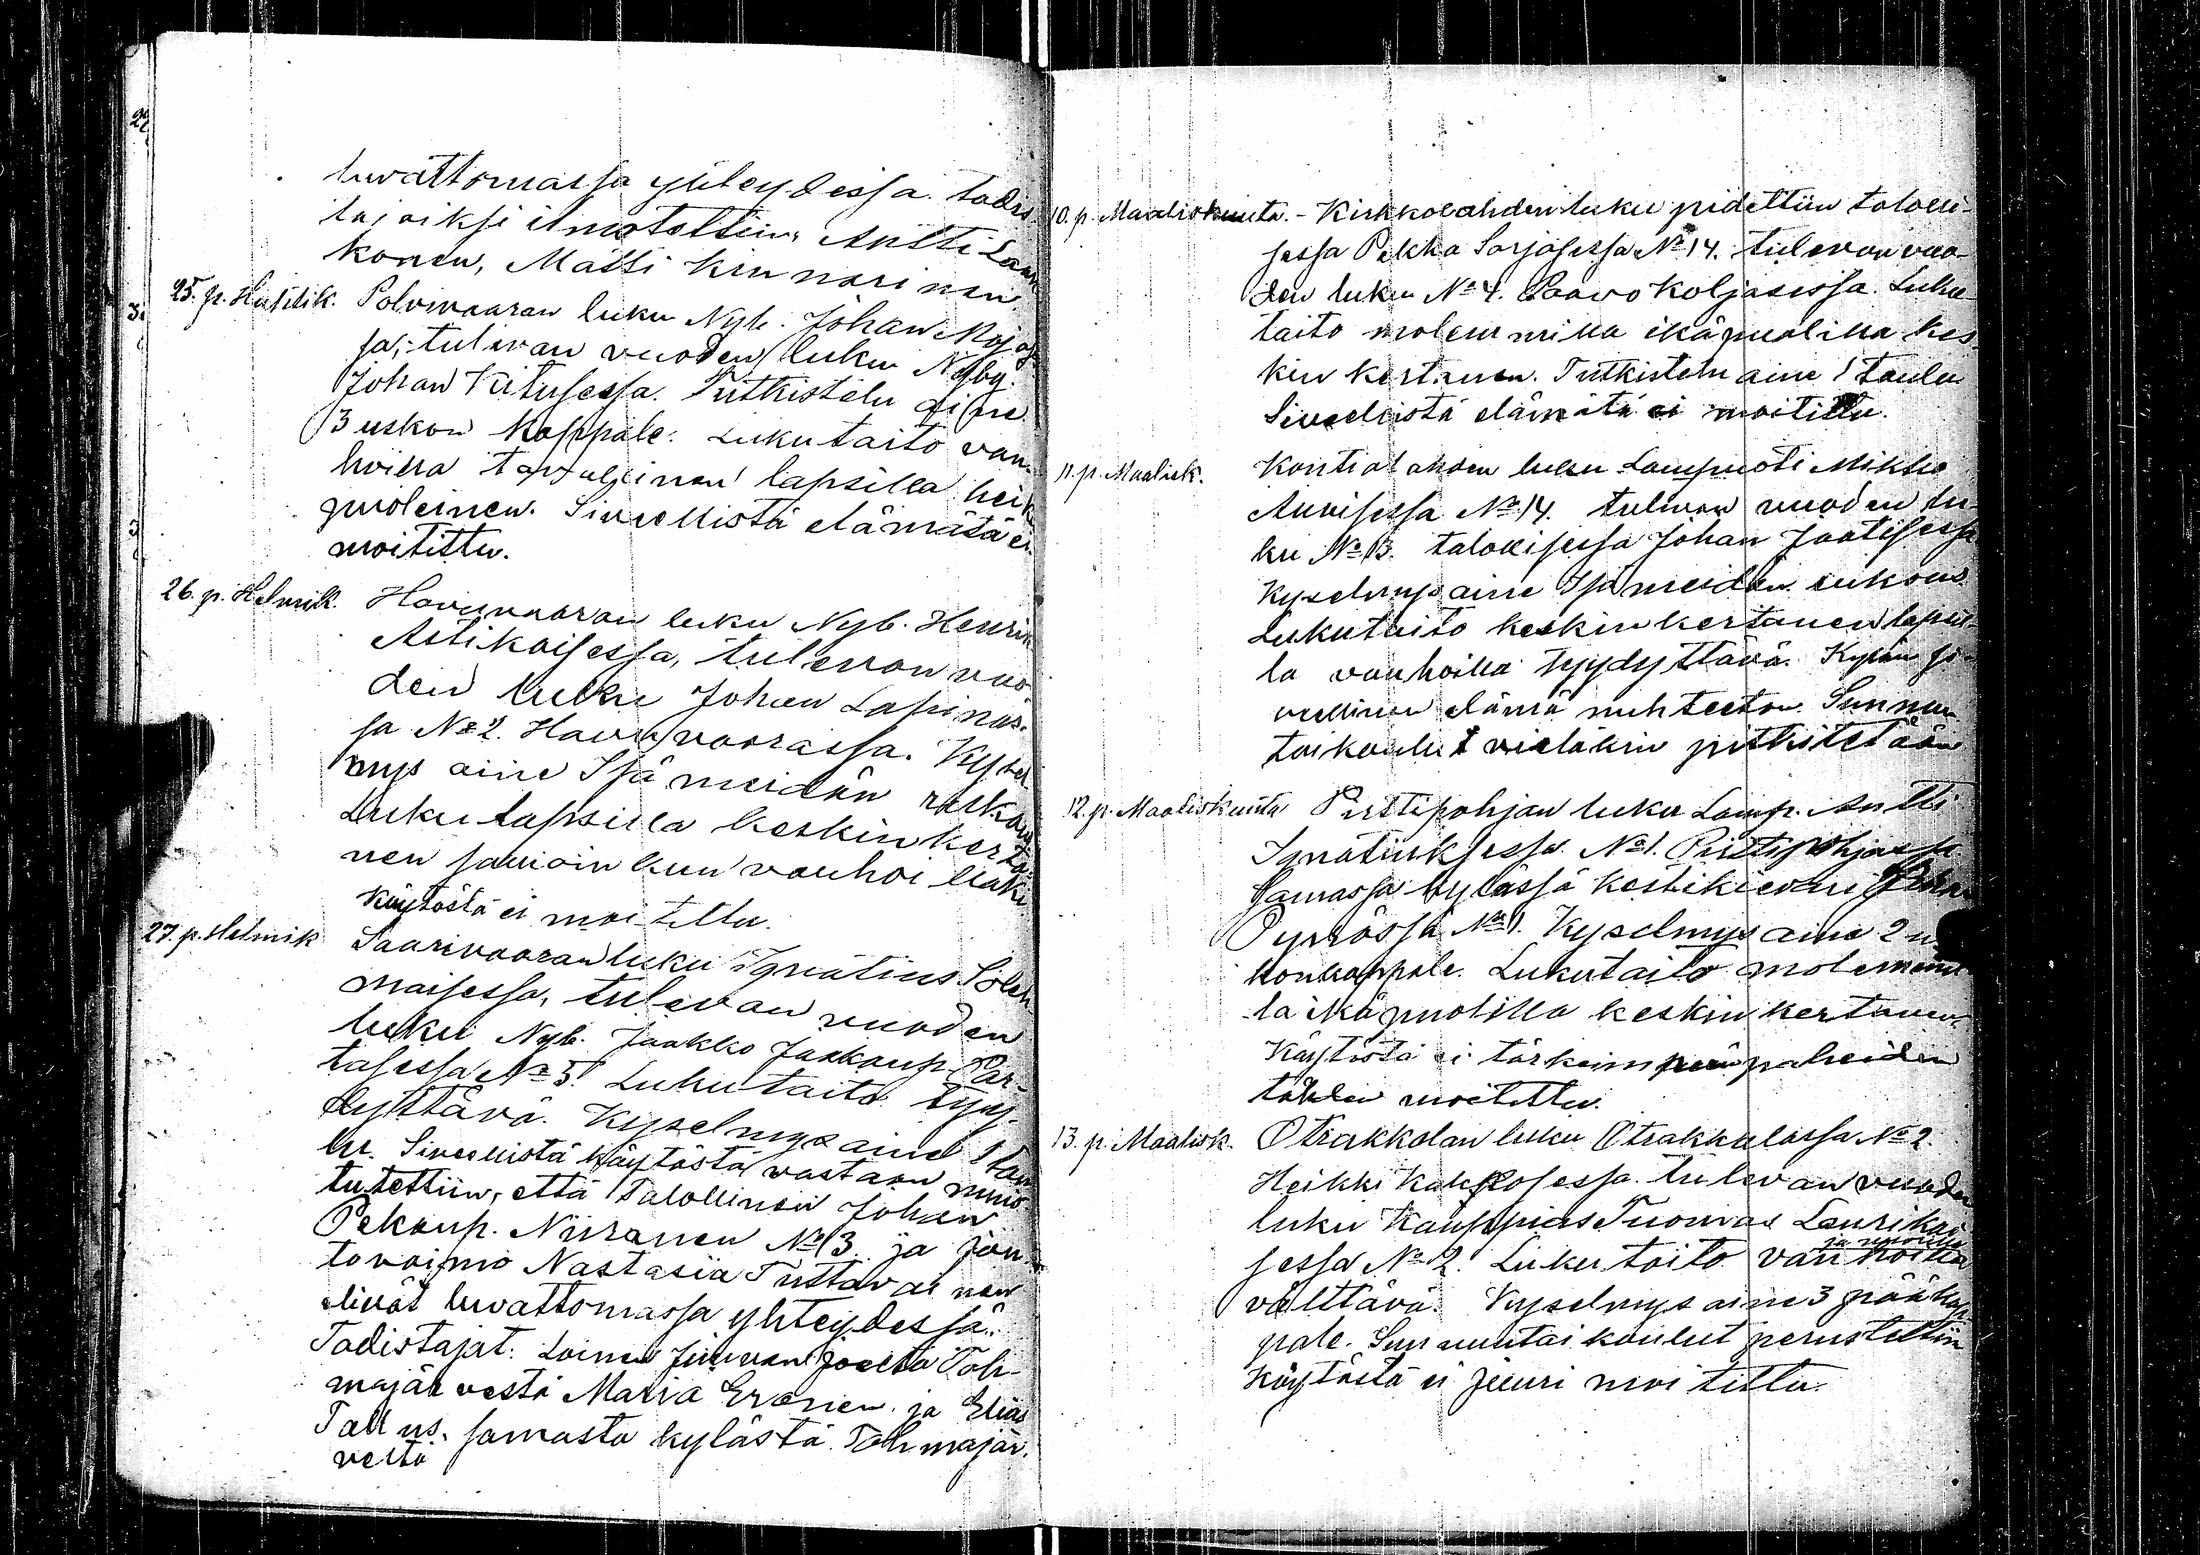 luvattomassa yhteydessä. todis-
tajaiksi ilmotettiin, Antti
konen, Matti Kinnarinen.
25. p. Helmik. Polvivaaran luku Nyb. Johan
sa, tulevan vuoden luku Nyby.
Johan Kitusessa. Tutkistelu aine
3 uskon kappale. Lukutaito van-
hoilla tavallinen lapsilla heik
puoleinen. Siveellistä elämätä ei
moitittu.
26. p. Helmik. Havuvaaran luku Nyb. Henrik
Astikaisessa, tulevan vuo-
den luku Johan Lapinas-
sa No 2. Havuvaarassa. Kysel
mys aine Isä meidän rukous
Luku lapsilla keskinkerta
nen samoin kun vanhoillaki
käytöstä ei moitittu.
27. p. Helmik Saarivaaran luku Ignatius
maisessa, tulevan vuoden
luku Nyb. Jaakko Jaakonp. Par-
tasessa No 5. Lukutaito tyy-
dyttävä. Kyselmys aine 1 tau
lu. Siveellistä käytöstä vastaan muis
tutettiin, että Talollinen Johan
Pekanp. Niiranen No 13. ja
tovaimo Nastasia
elivät luvattomassa yhteydessä.
Todistajat: Loinen Toh-
majärvestä Maria Eronen. ja Elias
Tallus. samasta kylästä. Tohmajär-
vestä
10. p. Maaliskuuta. - Kirkkolahden luku pidettiin talolli-
sessa Pekka Sarjosessa No 14. tulevan vuo-
den luku No 4. Paavo Koljosessa. Luku-
taito molemmilla ikäpuolilla kes-
kinkertanen. Tutkistelu aine 1 taulu
Siveellistä elämätä ei moitittu.
11. p. Maalisk. Kontiolahden luku Lampuoti Mikko
Auvisessa No 14. tulevan vuoden lu-
ku No 13. talollisessa Johan Jaatisessa
Kyselmys aine Isä meidän rukous
Lukutaito keskinkertanen lapsil-
la vanhoilla tyydyttävä. Kylän si-
veellinen elämä nuhteeton. Sunnun
taikoulut vieläkin pitkitetään
12. p. Maaliskuuta Pirttipohjan luku Lamp. Antti
Ignatiuksessa No 1. Pirttipohjassa
samassa kylässä kestikievari
Pyrrössä No 1. Kyselmys aine 2 us
konkappale. Lukutaito molemmil-
la ikäpuolilla keskinkertanen
Käytöstä ei tärkeimpäin paheiden
tähden moitittu.
13. p. Maalisk. Otrakkalan luku Otrakkalassa No 2
Heikki Kakkosessa. tulevan vuoden
luku Kauppias Tuomas Laurikai-
ja nuorilla
sessa No 2. Lukutaito vanhoilla
välttävä. Kyselmys aine 3 pääkap
pale. Sunnuntaikoulut perustettiin
Käytöstä ei juuri moitittu.